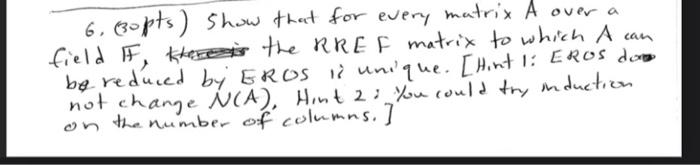 6. (30pts) Show that for every matrix A over a
field F, the RREF matrix to which A can
be reduced by EROS is unique. [Hint 1: EROS do
not change N(A), Hint 2: You could try induction
on the number of columns.]